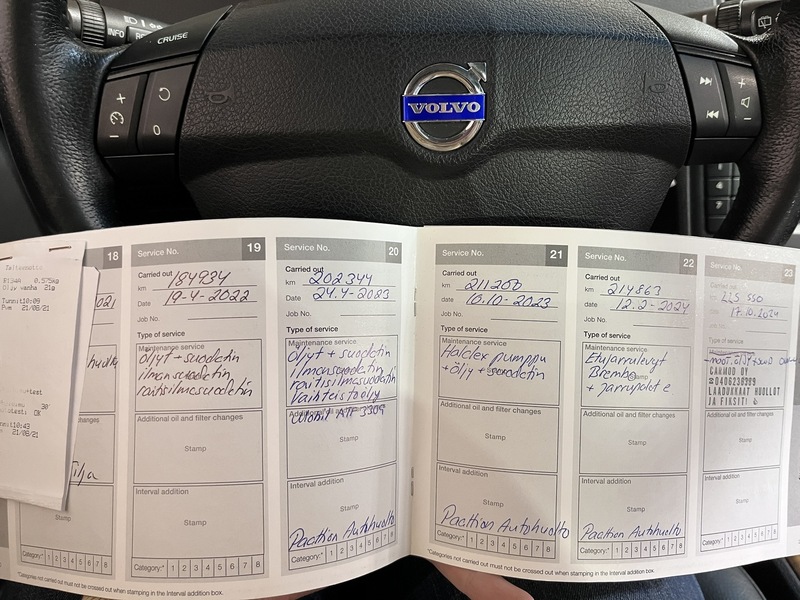 INFO
CRUISE
VOLVO
0
18
Service No. 19
Carried out
km 184934
Date 19-4-2022
Job No.
Type of service
Maintenance service
Öljyt + suodatin
ilmansuodatin
raitisilmasuodatin
Additional oil and filter changes
Stamp
Interval addition
Stamp
Category:* 1 2 3 4 5 6 7 8
Service No. 20
Carried out
km 202344
Date 24.4-2023
Job No.
Type of service
Maintenance service
Öljyt + suodatin
ilmansuodatin
raitisilmasuodatin
Vaihteistoöljy
Mobil ATF 3309
Additional oil and filter changes
Stamp
Interval addition
Stamp
Pacthon Autohuolto
Category:* 1 2 3 4 5 6 7 8
*Categories not carried out must not be crossed out when stamping in the Interval addition box.
Service No. 21
Carried out
km 211200
Date 10.10-2023
Job No.
Type of service
Maintenance service
Haldex pumppu
+ öljy + suodatin
Additional oil and filter changes
Stamp
Interval addition
Stamp
Pacthon Autohuolto
Category:* 1 2 3 4 5 6 7 8
Service No. 22
Carried out
km 214863
Date 12.2-2024
Job No.
Type of service
Maintenance service
Etujarrulevyt
Brembo
+ Jarrupalat e.
Additional oil and filter changes
Stamp
Interval addition
Stamp
Pacthon Autohuolto
Category:* 1 2 3 4 5 6 7 8
Service No. 23
Carried out
17.10.2024
Job No.
Type of service
CARMOD OY
LAADUKKAAT HUOLLOT
JA FIKSIT!
Additional oil and filter changes
Stamp
Interval addition
Stamp
Category:* 1 2 3 4 5 6 7 8
*Categories not carried out must not be crossed out when stamping in the Interval addition box.
0.575kg
Öljy vanha 21g
21/06/21
21/06/21
Stamp
Stamp
Category:* 1 2 3 4 5 6 7 8